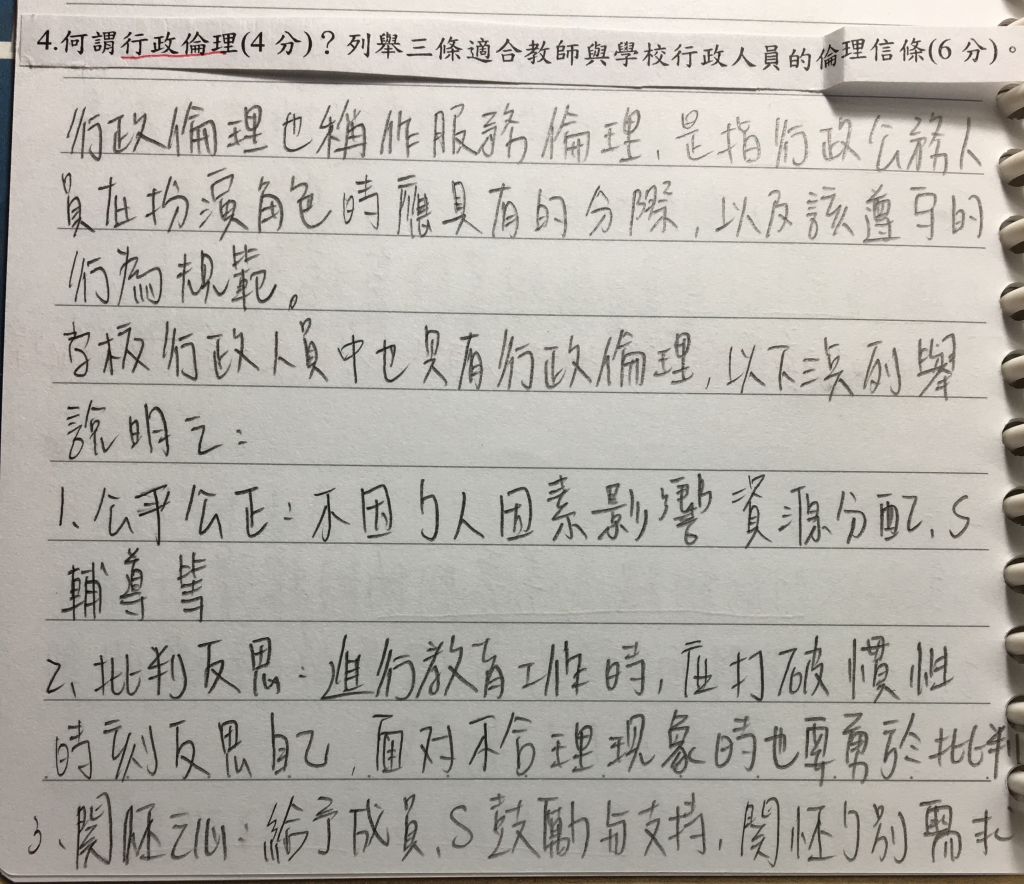 4.何謂行政倫理(4分)？列舉三條適合教師與學校行政人員的倫理信條(6分)。
行政倫理也稱作服務倫理,是指行政公務人
員在扮演角色時應具有的分際,以及該遵守的
行為規範。
学校行政人員中也具有行政倫理,以下三点列舉
說明之:
1、公平公正:不因个人因素影響資源分配、S
輔導等
2、批判反思:進行教育工作時,應打破慣性
時刻反思自己,面对不合理現象時也要勇於批判
3、関怀之心:給予成員、S鼓勵与支持,関怀个別需求